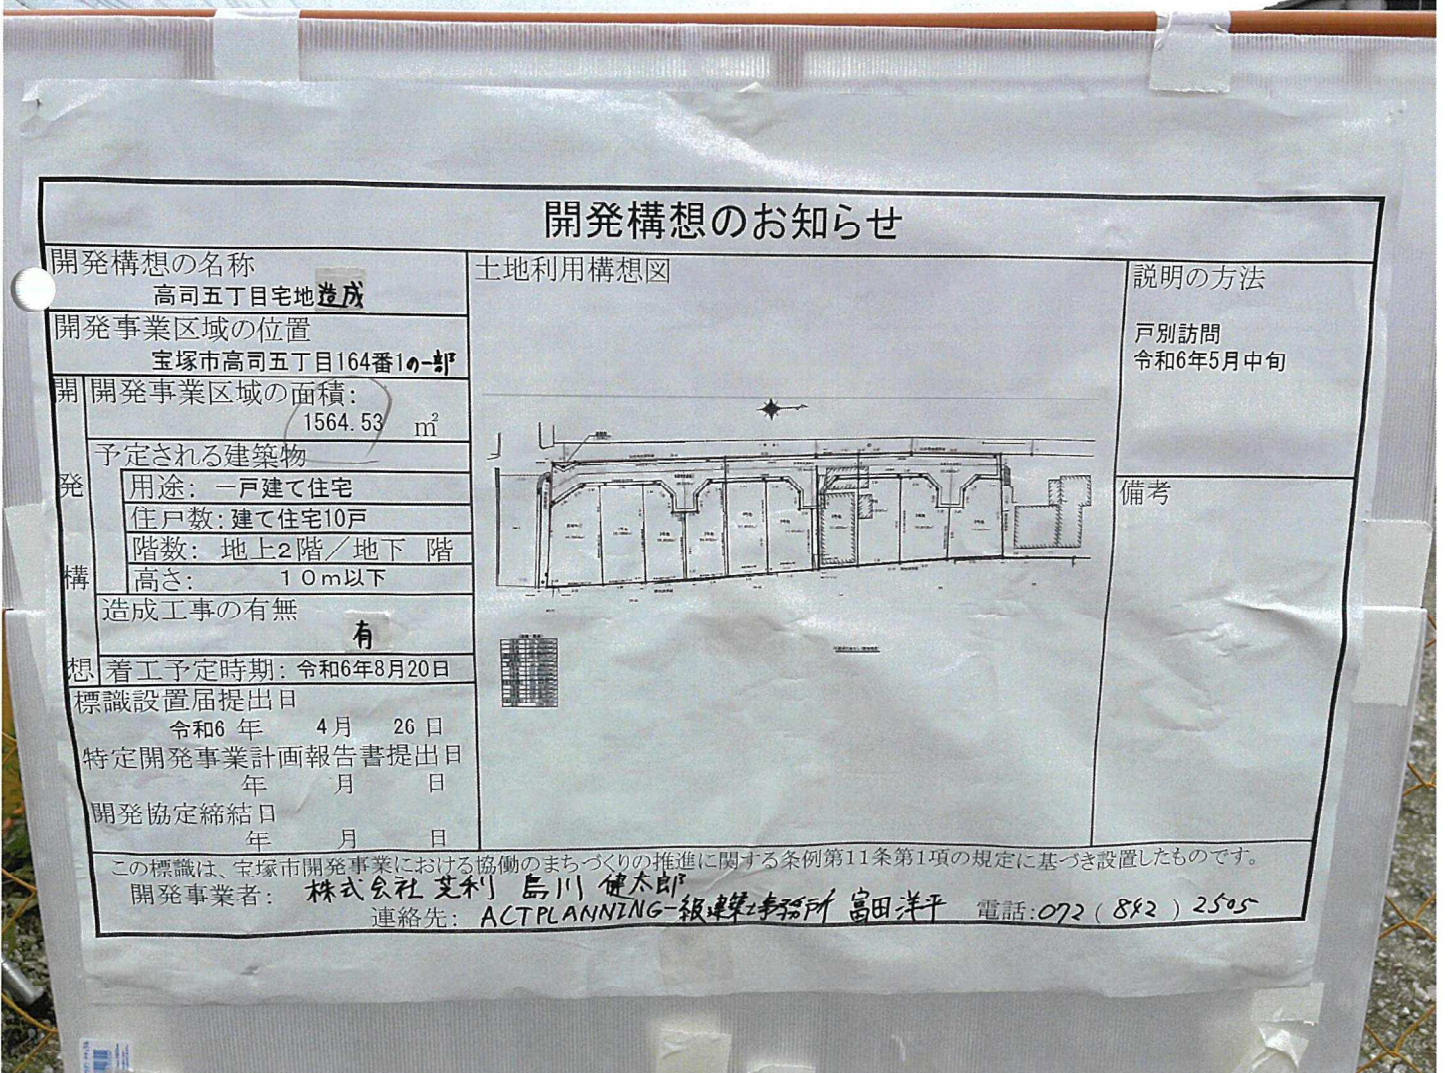 開発構想のお知らせ
開発構想の名称
高司五丁目宅地造成
開発事業区域の位置
宝塚市高司五丁目164番1の一部
開発構想
開発事業区域の面積:
1564.53 ㎡
予定される建築物
用途: 一戸建て住宅
住戸数: 建て住宅10戸
階数: 地上2階/地下 階
高さ: 10m以下
造成工事の有無
有
着工予定時期: 令和6年8月20日
標識設置届提出日
令和6 年 4月 26 日
特定開発事業計画報告書提出日
年 月 日
開発協定締結日
年 月 日
土地利用構想図
説明の方法
戸別訪問
令和6年5月中旬
備考
この標識は、宝塚市開発事業における協働のまちづくりの推進に関する条例第11条第1項の規定に基づき設置したものです。
開発事業者: 株式会社 芝利 島川 健太郎
連絡先: ACTPLANNING一級建築士事務所 富田洋平 電話:072(842)2505